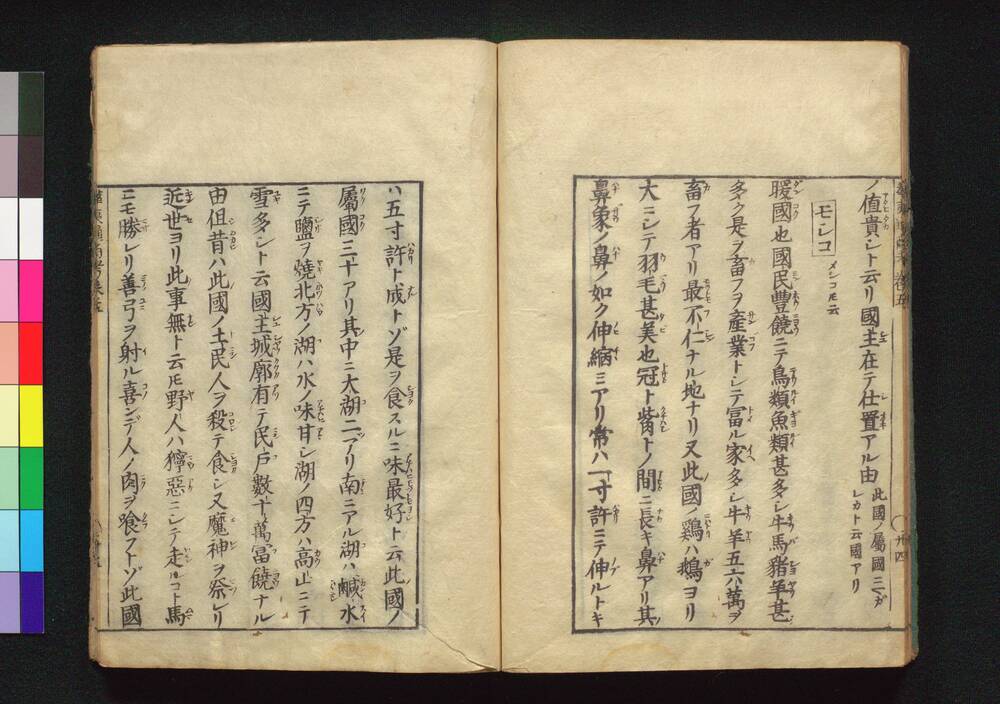 ノ値貴シト云リ國主在テ仕置アル由 此國ノ屬國ニ
レカト云國アリ
モシコ メシコ𪜈云
暖國也國民豐饒ニテ鳥類魚類甚多シ牛馬猪羊甚
多ク是ヲ畜フヲ産業トシテ冨ル家多シ牛羊五六萬ヲ
畜フ者アリ最不仁ナル地ナリ又此國ノ鷄ハ鵝ヨリ
大ニシテ羽毛甚美也冠ト觜トノ間ニ長キ鼻アリ其
鼻象ノ鼻ノ如ク伸縮ミアリ常ハ一寸許ニテ伸ルトキ
ハ五寸許ト成トゾ是ヲ食スルニ味最好ト云此國ノ
屬國三十アリ其中ニ大湖二ツアリ南ニアル湖ハ鹹水
ニテ鹽ヲ燒北方ノ湖ハ水ノ味甘シ湖ノ四方ハ高山ニテ
雪多シト云國主城廓有テ民戸數十萬冨饒ナル
由但昔ハ此國ノ土民人ヲ殺テ食シ又魔神ヲ祭レリ
近世ヨリ此事無ト云𪜈野人ハ獰惡ニシテ走ルコト馬
ニモ勝レリ善弓ヲ射ル喜ンデ人ノ肉ヲ喰フトゾ此國